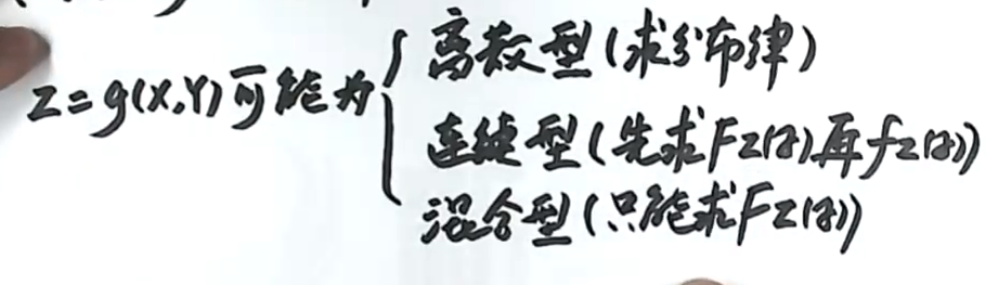 Z=g(X,Y)可能为
离散型(求分布律)
连续型(先求FZ(z)再fZ(z))
混合型(只能求FZ(z))